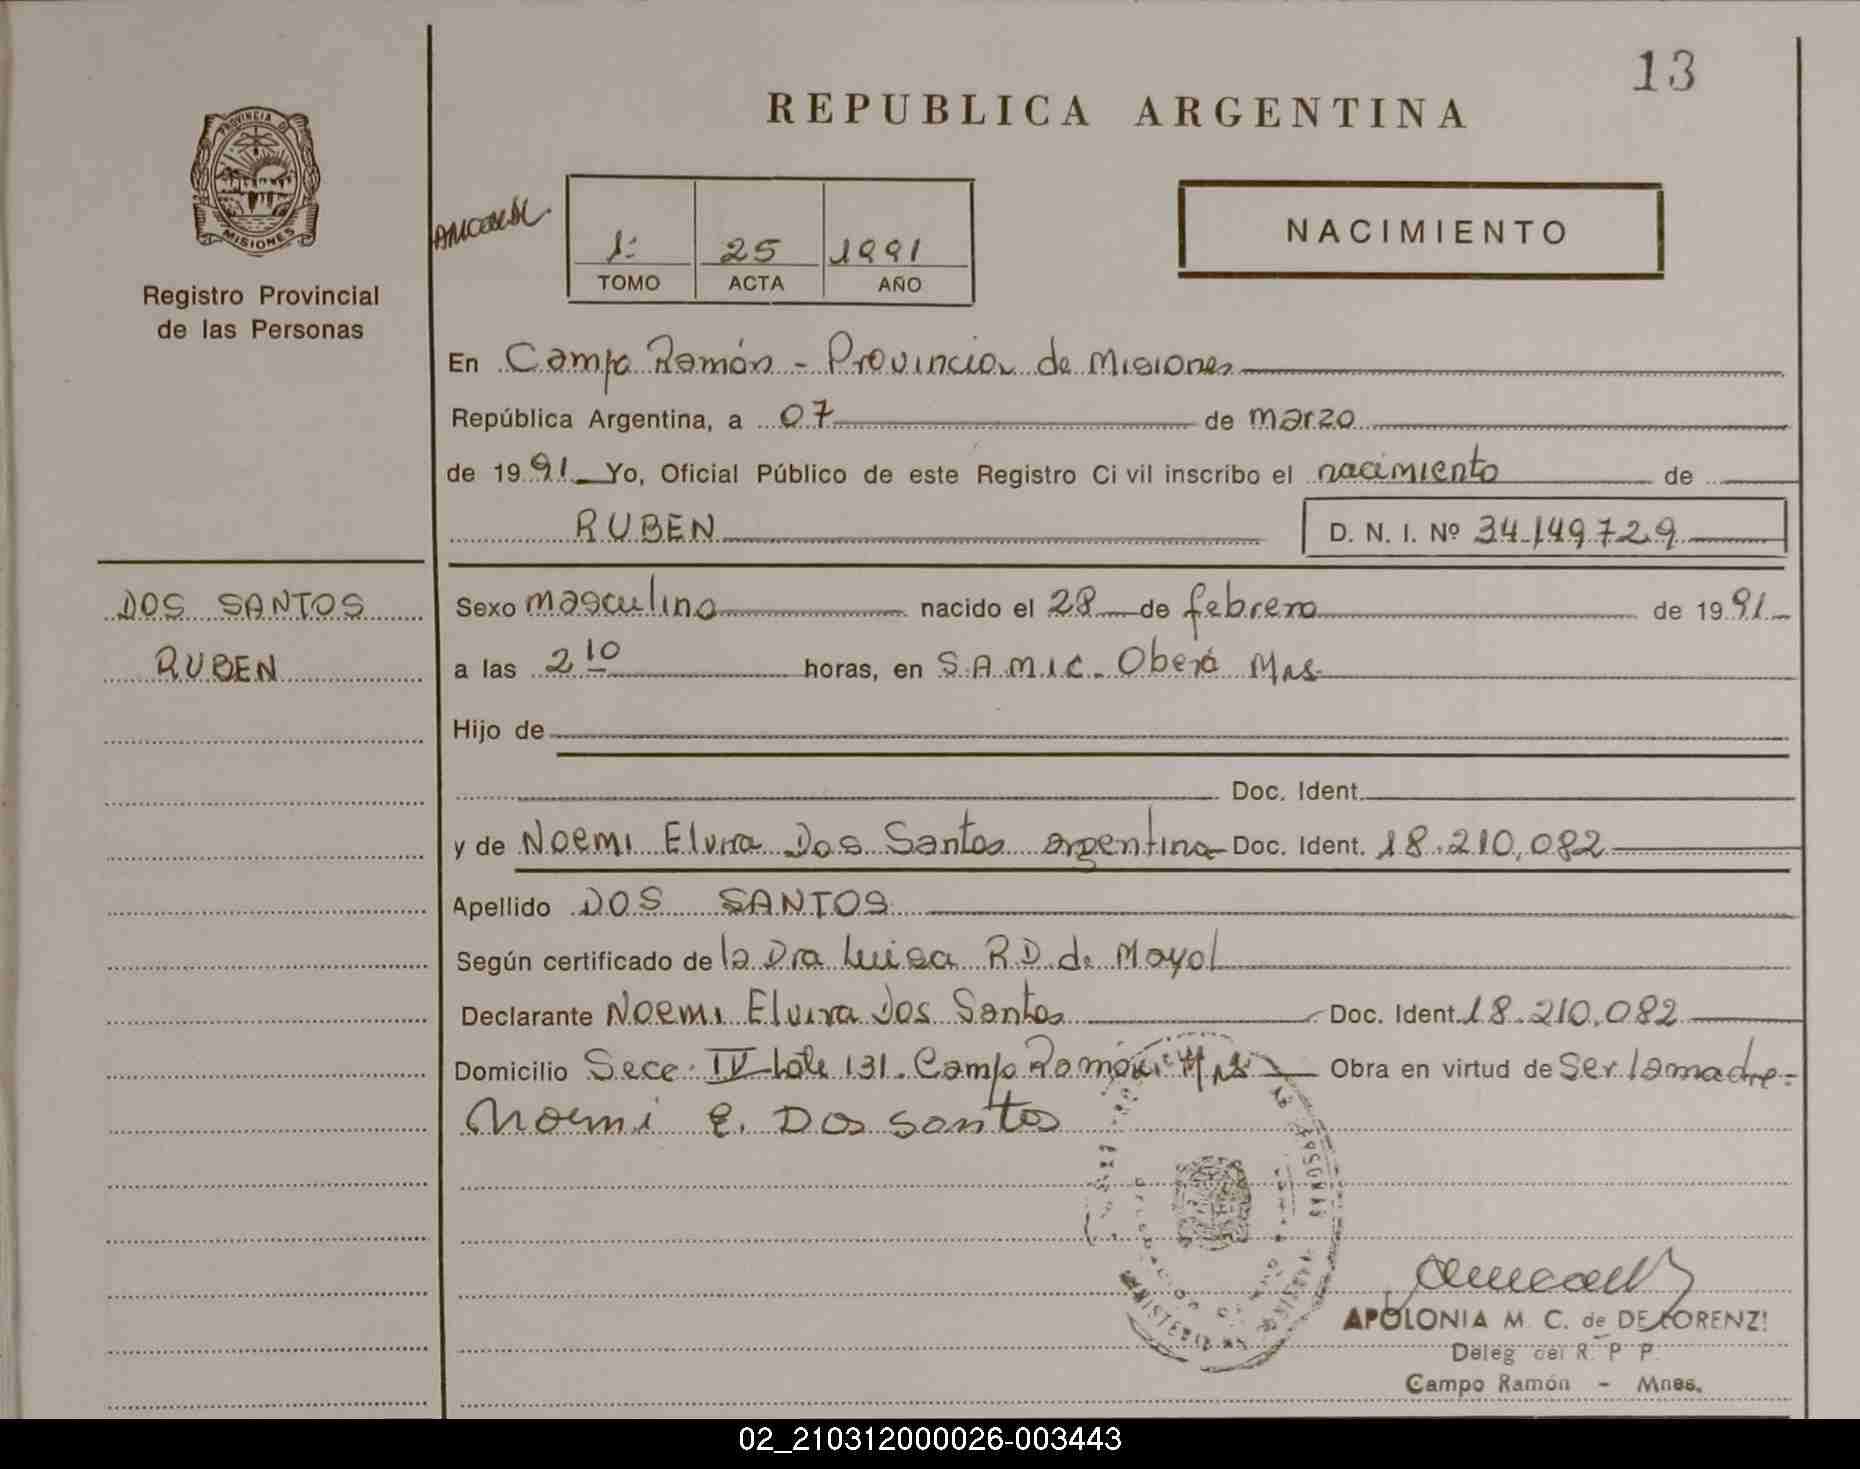 13
REPUBLICA ARGENTINA
PROVINCIA DE
MISIONES
Registro Provincial
de las Personas
1º 25 1991
TOMO ACTA AÑO
NACIMIENTO
En Campo Ramón - Provincia de Misiones
República Argentina, a 07 de marzo
de 1991 Yo, Oficial Público de este Registro Civil inscribo el nacimiento de
RUBEN D. N. I. Nº 34.149.729
DOS SANTOS
RUBEN
Sexo masculino nacido el 28 de febrero de 1991
a las 2 10 horas, en S.A.M.I.C. Oberá Mns
Hijo de
Doc. Ident.
y de Noemi Elvira Dos Santos argentina Doc. Ident. 18.210.082
Apellido DOS SANTOS
Según certificado de la Dra Luisa R.D. de Mayol
Declarante Noemi Elvira Dos Santos Doc. Ident. 18.210.082
Domicilio Secc. IV Lote 131. Campo Ramón Mns Obra en virtud de Ser la madre.
Noemi E. Dos santos
APOLONIA M. C. de DE LORENZI
Deleg del R. P. P.
Campo Ramón - Mnes.
02_210312000026-003443